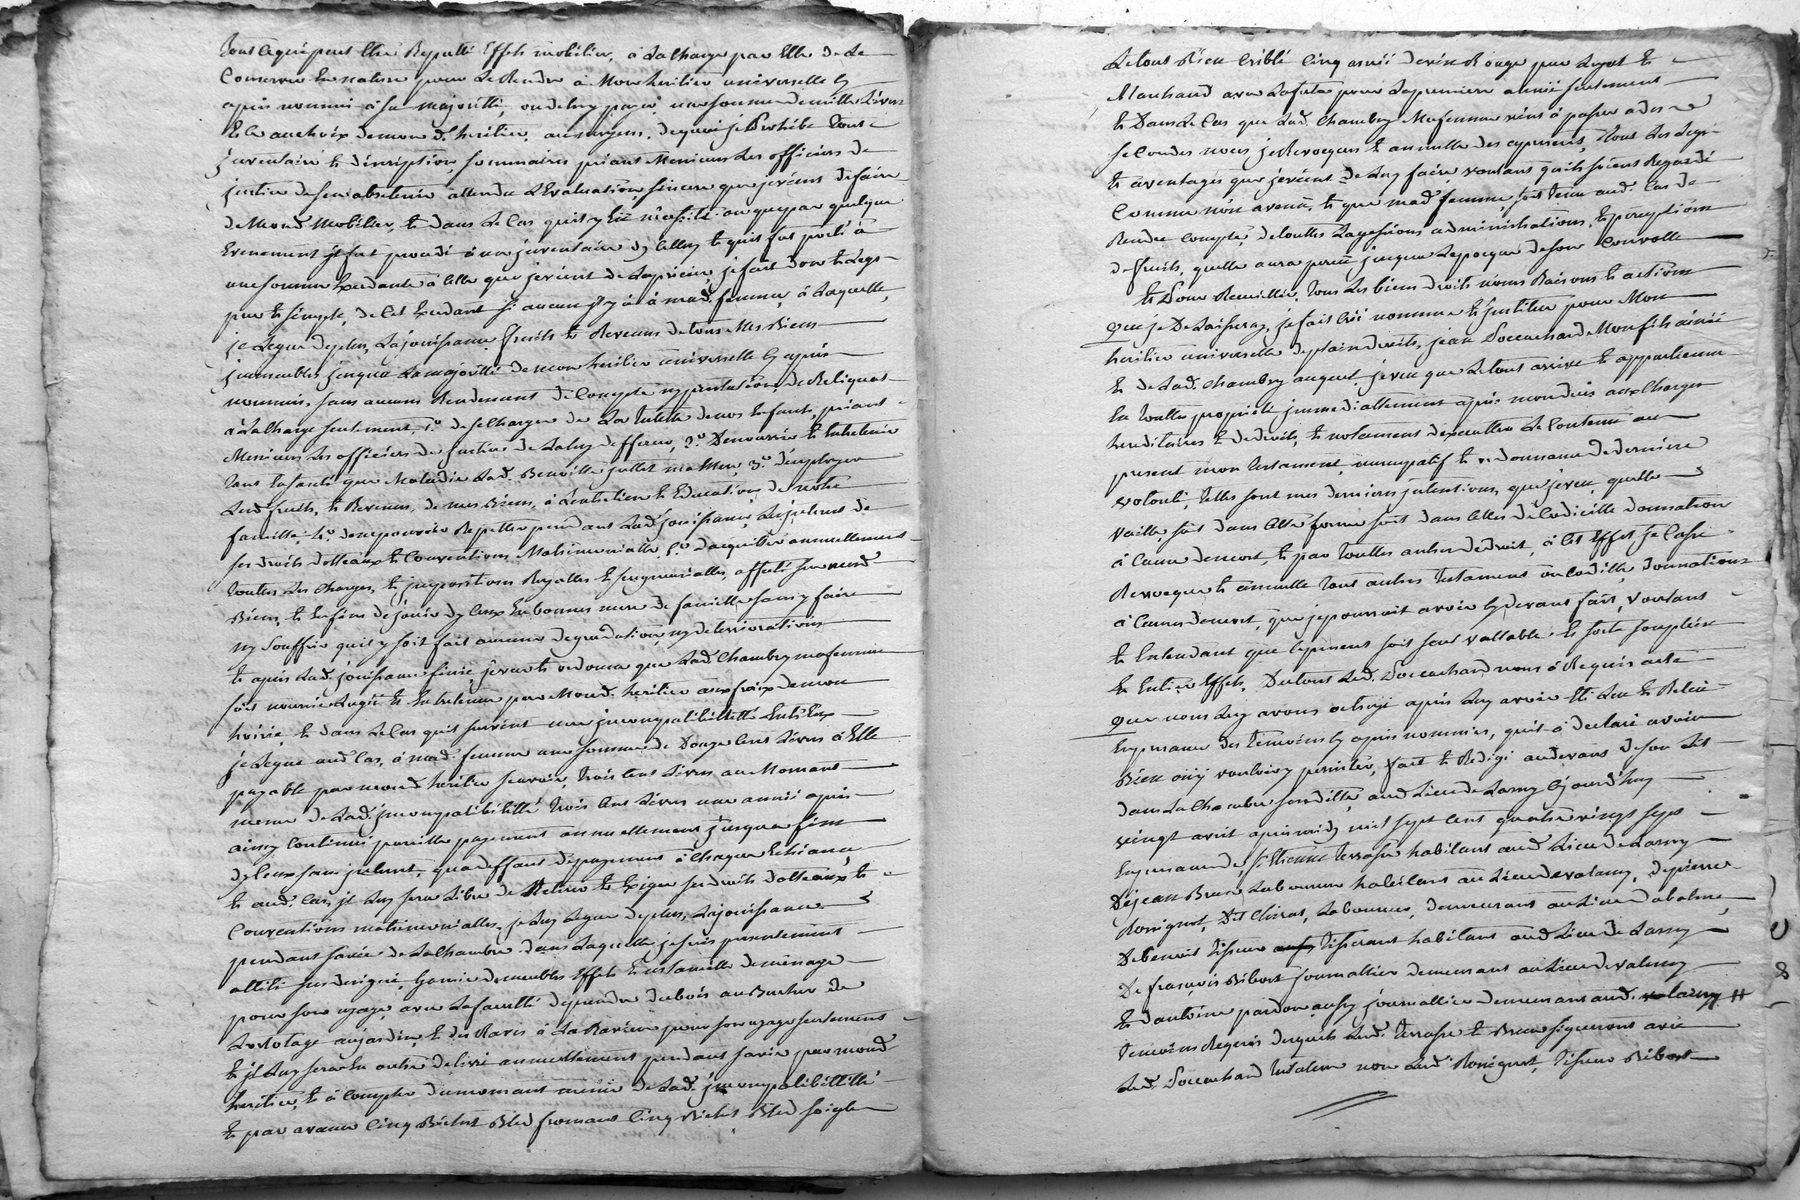 tout ce qui peut être Reputté Effets mobilier, à la charge par Elle de Le
Conserver En nature pour Le Rendre à Mon heritier universelle Cy
après nommé à sa majorité, ou de luy payer une somme de mille Livres
Et ce au choix de mon d. heritier, au surplus, de quoi je Prohibe tout
jnventaire Et déscription sommaires priant Messieurs Les officiers de
justice de s'en abstenir attendu L'Evaluation sincere que je viens de faire
de Mond. Mobilier, Et dans Le Cas qu'il y Eût nécessité ou que par quelque
Evenement il fut procedé à un jnventaire d'jcelluy Et qu'il fut porté à
une somme Excedante à Celle que je vient de La priser, je fait don Et Legs
pur Et simple, de Cet Excedant si aucun jl y a à mad. femme, à Laquelle,
je Legue de plus, La jouissance fruits Et Revenus de tous Mes Biens
jmmeubles jusqu'à La majorité de mon heritier universelle Cy après
nommé, sans aucuns Rendement de Compte ny prestation de Reliquat
à La charge seulement, 1.° de se Charger de La Tutelle de nos Enfants, priant
Messieurs Les officiers de justice de La luy defferer, 2.° De nourrir Et Entretenir
tant En santé que Maladie Lad. Benoitte 3.° d'employer
Lesd. fruits, Et Revenus, de mes Biens, à L'entretien Et Education, de notre
famille 4.° de ne pouvoir Repetter pendant Lad. jouissance de
ses droits dotteaux Et Conventions Matrimonialles, 5.° d'acquitter annuellement
toutes Les Charges, Et jmpositions Royalles Et seigneurialles, affecté sur mesd.
Biens, Et Enfin de jouir d'jceux En bonne mere de famille sans y faire
ny souffrir qu'il y soit fait aucune degradation, ny deterriorations
Et après Lad. jouissance finie, je veut Et ordonne que Lad. Chambry ma femme
soit nourrie Logée Et Entretenue par Mond. heritier aux fraix de mon
hoirie, Et dans Le Cas qu'il survint une jncompatibillitté Entr'Eux
je Legue aud. Cas, à mad. femme une somme de Douze Cent Livres à Elle
payable par mond. heritier sçavoir, trois Cent Livres au Moment
même de Lad. jncompatibillitté trois Cent Livres une année après
ainsy Continué pareille payement annuellement jusqu'a fin
d'jceux sans jnterest, qu'a deffaut de payement à Chaque Echéance
Et aud. Cas, jl luy sera Libre de Retirer Et Exiger ses droits dotteaux Et
Conventions matrimonialles, je luy Legue de plus, La jouissance
pendant sa vie de La chambre dans Laquelle je suis presentement
allité sus designée, garnie de meubles Effets Et ustancille de ménage
pour son usage, avec La faculté de prendre du bois au Bucher de
L'ortolage au jardin, Et des Raves à La Raviere pour son usage seulement
Et jl luy sera En outre delivré annuellement pendant sa vie par mond.
heritier, Et à Compter du moment même de Lad. jncompatibillitté
Et par avance Cinq Bichet Bled froment Cinq Bichet Bled seigle
Le tout Bien Criblé Cinq asnée de vin Rouge pur Loyal Et
Marchand avec La futte pour La premiere année seulement
Et Dans Le Cas que Lad. Chambry Ma femme vint à passer à des
secondes noces je Revoque Et annulle dès apresent, tous Les Legs
Et aventages que je vient de Luy faire voulant qu'ils soient Regardé
Comme non avenu, Et que mad. femme, soit tenue aud. Cas de
Rendre Compte, de touttes La gestions administrations, Et perceptions
de fruits, qu'elle aura perçu jusqu'à L'epoque de son Convolle
Et Pour Recuillir, tous Les biens droits noms Raisons Et actions
que je De Laisseray, je fait Créé nomme Et jnstitue pour Mon
heritier universelle de plain droits, jean Soccachard Mon fils ainée
Et de Lad. Chambry auquel je veu que Le tout arrive Et appartienne
En toutte propriété jmmediattement après mon decès aux Charges
hereditaires Et de droits, Et notament d'executter Le Contenu au
present mon testament nuncupatif Et ordonnance de derniere
volonté, telles sont mes dernieres jntentions, que je veu qu'elle
vaille, soit dans Cette forme soit dans Celles de Codicille donnation
à Cause de mort, Et par touttes autres de droit, à Cet Effet, je Casse
Revoque Et annulle tous autres testament ou Codicille, donnations
à Causes de mort, que je pourrait avoir Cy devant fait, voulant
Et Entendant que Ce present soit seul vallable Et sorte son plein
Et Entier Effets, Du tout Led. Soccachard nous à Requis acte
que nous luy avons octroyé après luy avoir Eté Lu Et Relu
En presence des témoins Cy après nommés, qu'il à declaré avoir
Bien ouïy vouloir y persister, fait Et Redigé au devant de son Lit
dans La Chambre susditte, aud. Lieu de Larny Cejourd'huy
vingt avril après midy mil sept Cent quatre vingt sept
En presence de, s. Etienne terrasse habitant aud. Lieu de Larny
De jean Brun Laboureur habitant au Lieu de valancy, De pierre
Ronignot, Dit Chirat, Laboureur, demeurant au Lieu d'abolene,
De benoit tiseur tisserant habitant aud. Lieu de Larny
De françois Ribost journallier demeurant au Lieu de valancy
Et d'antoine pardon aussy journallier demeurant aud. Larny #
temoins Requis desquels Led. terrasse Et Brun signeront avec
Led. Soccachard testateur non Led. Ronignot, tiseur Ribost